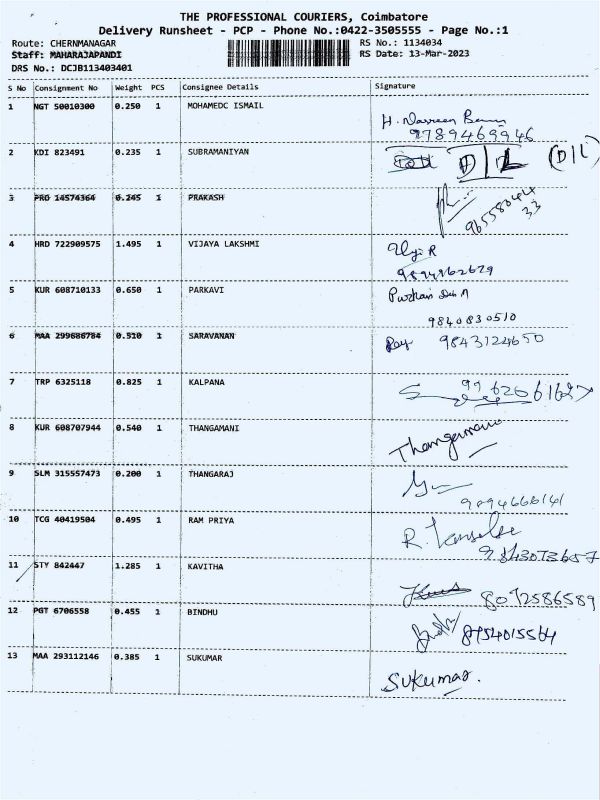 THE PROFESSIONAL COURIERS, Coimbatore
Delivery Runsheet - PCP - Phone No.:0422-3505555 - Page No.:1
Route: CHERNMANAGAR RS No.: 1134034
Staff: MAHARAJAPANDI RS Date: 13-Mar-2023
DRS No.: DCJB113403401
S No Consignment No Weight PCS Consignee Details Signature
1 NGT 50010300 0.250 1 MOHAMEDC ISMAIL
9789469946
2 KDI 823491 0.235 1 SUBRAMANIYAN
D/L (D/L)
3 PRO 14574364 0.245 1 PRAKASH
9655804433
4 HRD 722909575 1.495 1 VIJAYA LAKSHMI
9894962679
5 KUR 608710133 0.650 1 PARKAVI
9840830510
6 MAA 299686784 0.510 1 SARAVANAN
9843124650
7 TRP 6325118 0.825 1 KALPANA
8 KUR 608707944 0.540 1 THANGAMANI
Thangamani
9 SLM 315557473 0.200 1 THANGARAJ
10 TCG 40419504 0.495 1 RAM PRIYA
9843073657
11 STY 842447 1.285 1 KAVITHA
8072586589
12 PGT 6706558 0.455 1 BINDHU
8754015564
13 MAA 293112146 0.385 1 SUKUMAR
Sukumar.